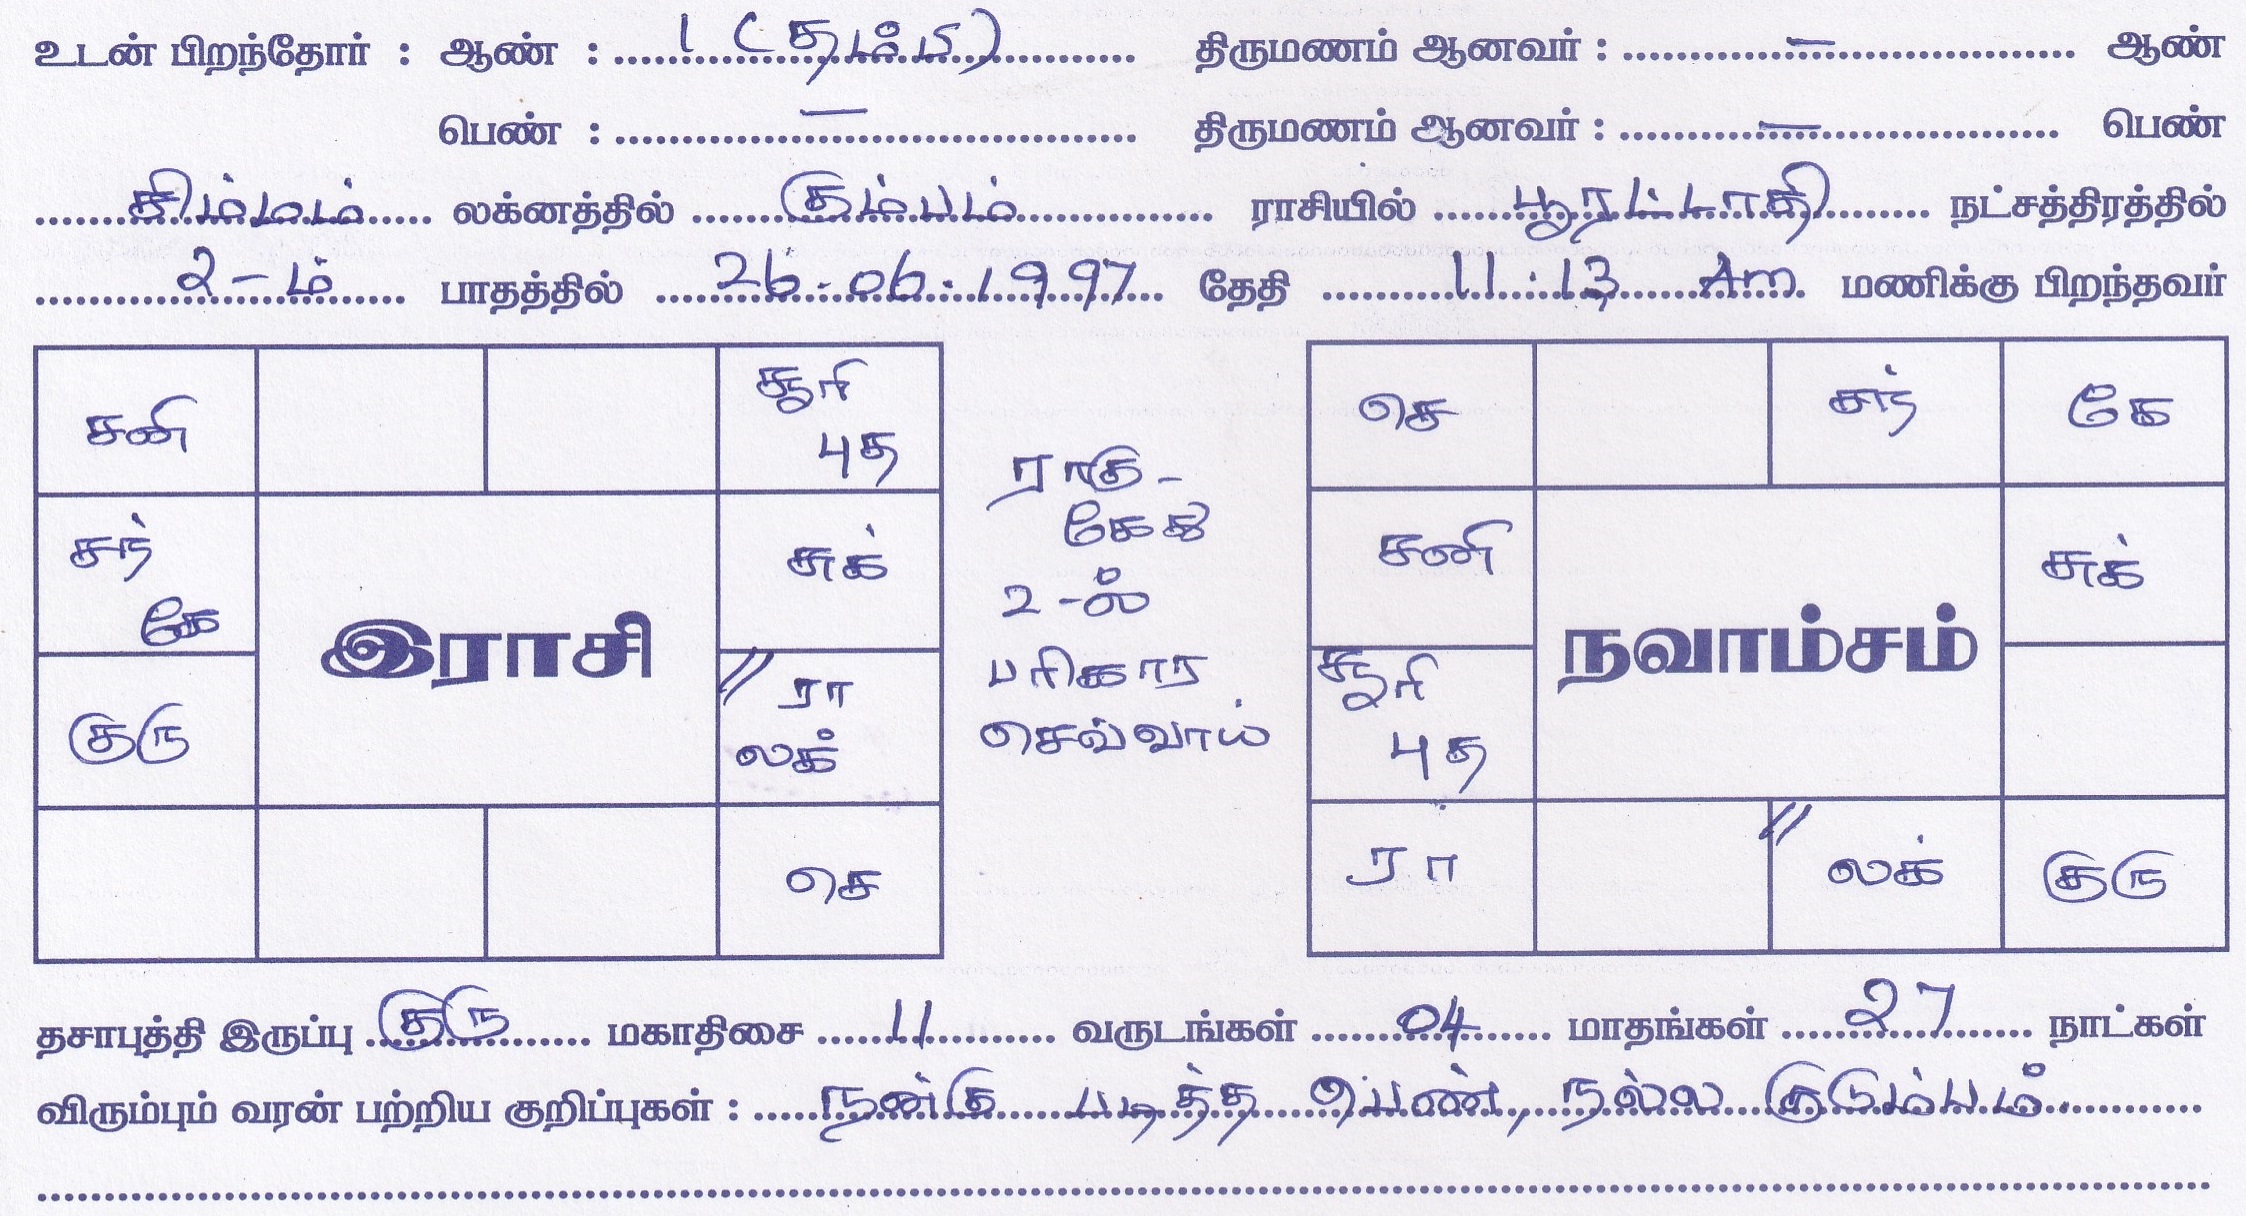 உடன் பிறந்தோர் : ஆண் : 1 (தம்பி) திருமணம் ஆனவர் : – ஆண்
பெண் : – திருமணம் ஆனவர் : – பெண்
சிம்மம் லக்னத்தில் கும்பம் ராசியில் பூரட்டாதி நட்சத்திரத்தில்
2-ம் பாதத்தில் 26.06.1997 தேதி 11.13 Am மணிக்கு பிறந்தவர்
சனி
சூரி
புத
சந்
கே
சுக்
இராசி
குரு
// ரா
லக்
செ
ராகு -
கேது
2-ல்
பரிகார
செவ்வாய்
செ
சந்
கே
சனி
சுக்
நவாம்சம்
சூரி
புத
ரா
// லக்
குரு
தசாபுத்தி இருப்பு குரு மகாதிசை 11 வருடங்கள் 04 மாதங்கள் 27 நாட்கள்
விரும்பும் வரன் பற்றிய குறிப்புகள் : நன்கு படித்த பெண், நல்ல குடும்பம்.